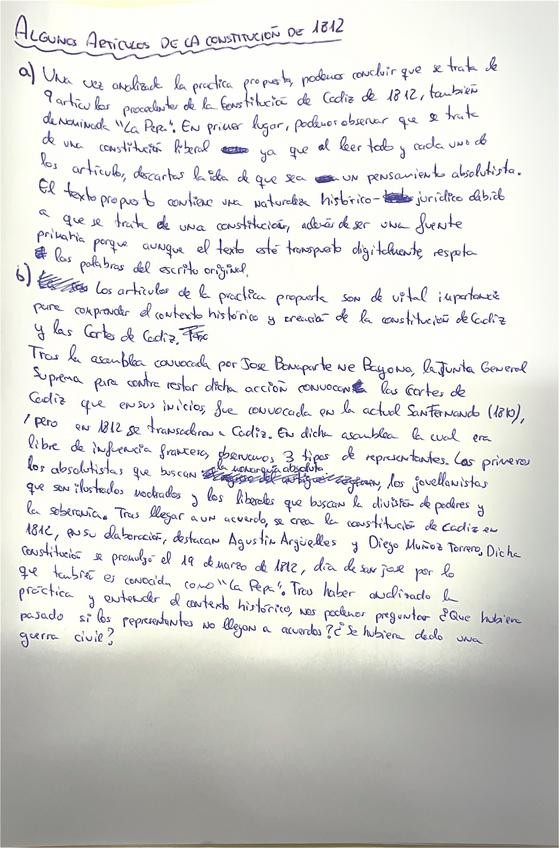 ALGUNOS ARTÍCULOS DE LA CONSTITUCIÓN DE 1812
a) Una vez analizada la practica propuesta, podemos concluir que se trata de
9 articulos procedentes de la Constitución de Cadiz de 1812, también
denominada "La Pepa". En primer lugar, podemos observar que se trata
de una constitución liberal ya que al leer todo y cada uno de
los artículo, descartas la idea de que sea un pensamiento absolutista.
El texto propuesto contiene una naturaleza histórico- jurídico debido
a que se trata de una constitución, además de ser una fuente
primaria porque aunque el texto esté transpuesto digitalmente, respeta
las palabras del escrito original.
b) Los artículos de la practica propuesta son de vital importancia
para comprender el contexto histórico y creación de la constitución de Cadiz
y las Cortes de Cadiz.
Tras la asamblea convocada por Jose Bonaparte ne Bayona, la Junta General
Suprema para contra restar dicha acción convocan las Cortes de
Cadiz que en sus inicios, fue convocada en la actual San Fernando (1810),
pero en 1812 se transadaron a Cadiz. En dicha asamblea la cual era
libre de influencia francesa, observamos 3 tipos de representantes. Los primeros
los absolutistas que buscan la monarquía absoluta, los jovellanistas
que son ilustrados moderados y los liberales que buscan la división de poderes y
la soberania. Tras llegar a un acuerdo, se crea la constitución de Cadiz en
1812, en su elaboración, destacan Agustín Argüelles y Diego Muñoz Torrero. Dicha
constitución se promulgó el 19 de marzo de 1812, día de san jose por lo
que también es conocida como "La Pepa". Tras haber analizado la
práctica y entender el contexto histórico, nos podemos preguntar ¿Que hubiera
pasado si los representantes no llegan a acuerdos? ¿Se hubiera dado una
guerra civil?